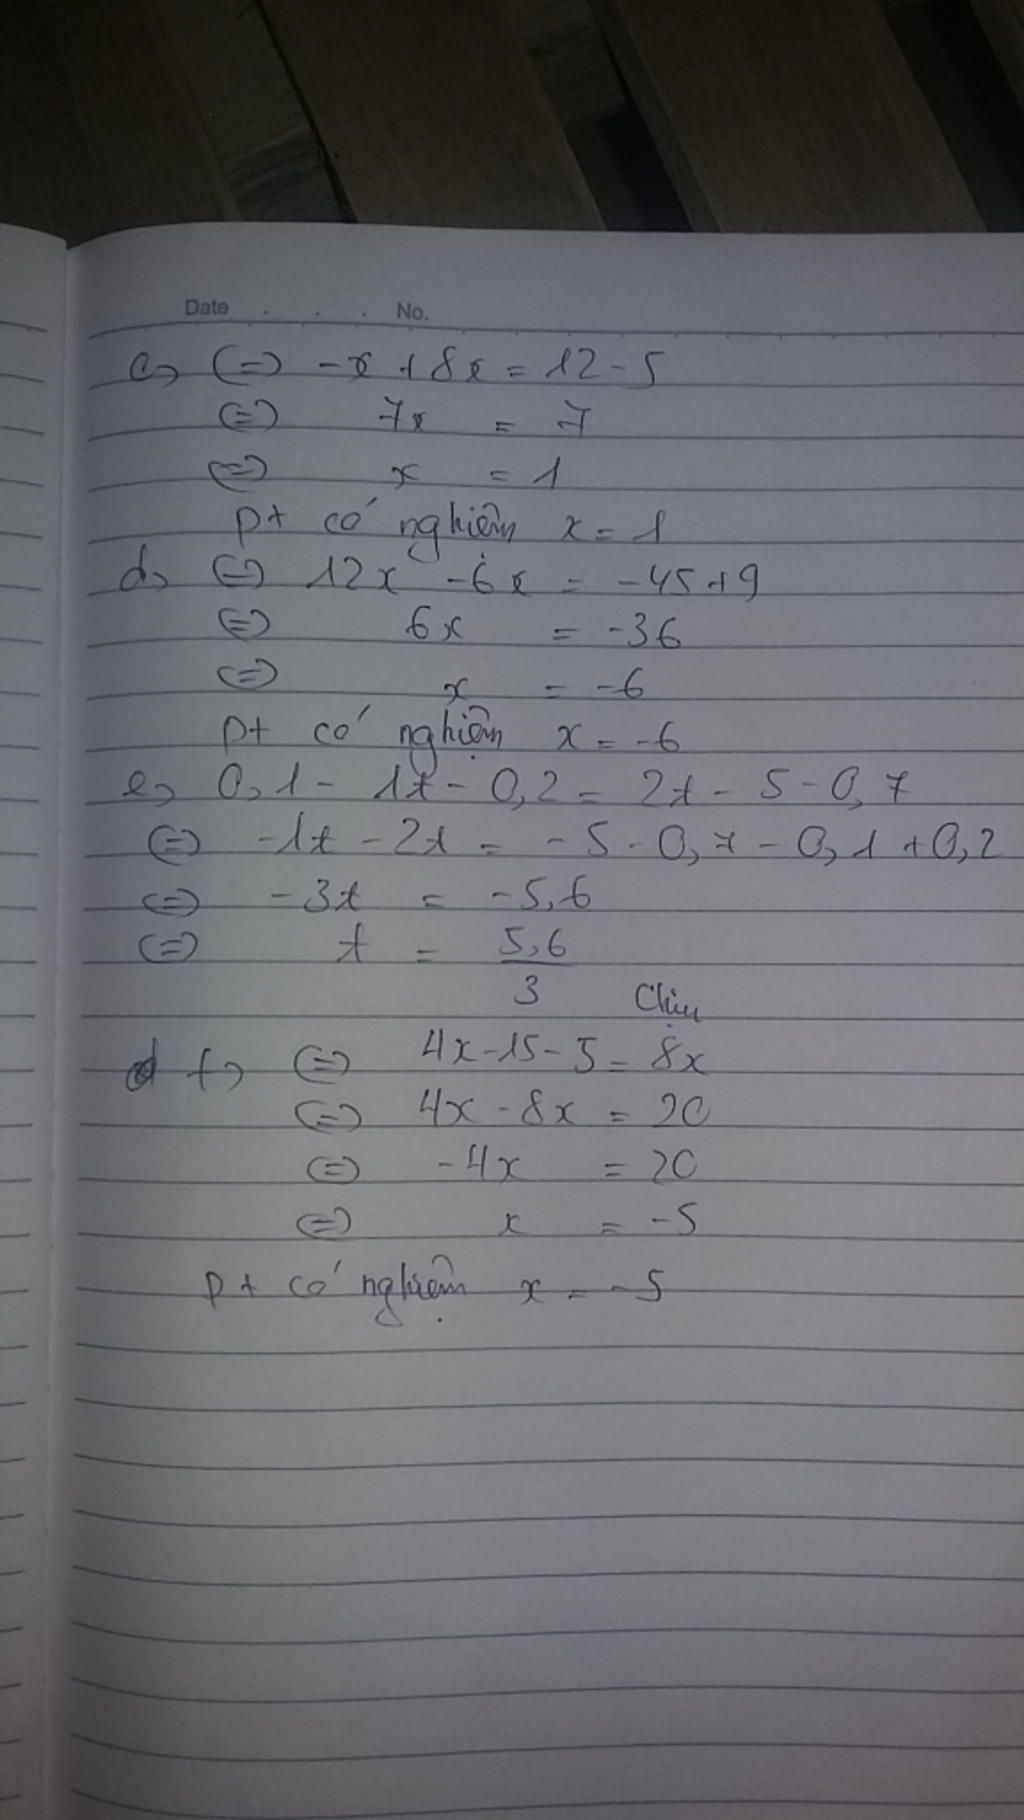 Date . . . No.
c, (=) -x + 8x = 12 - 5
(=) 7x = 7
(=) x = 1
pt có nghiệm x = 1
d, (=) 12x - 6x = -45 + 9
(=) 6x = -36
(=) x = -6
pt có nghiệm x = -6
e, 0,1 - 1t - 0,2 = 2t - 5 - 0,7
(=) -1t - 2t = -5 - 0,7 - 0,1 + 0,2
(=) -3t = -5,6
(=) t = 5,6
3 Chịu
f, (=) 4x - 15 - 5 = 8x
(=) 4x - 8x = 20
(=) -4x = 20
(=) x = -5
pt có nghiệm x = -5